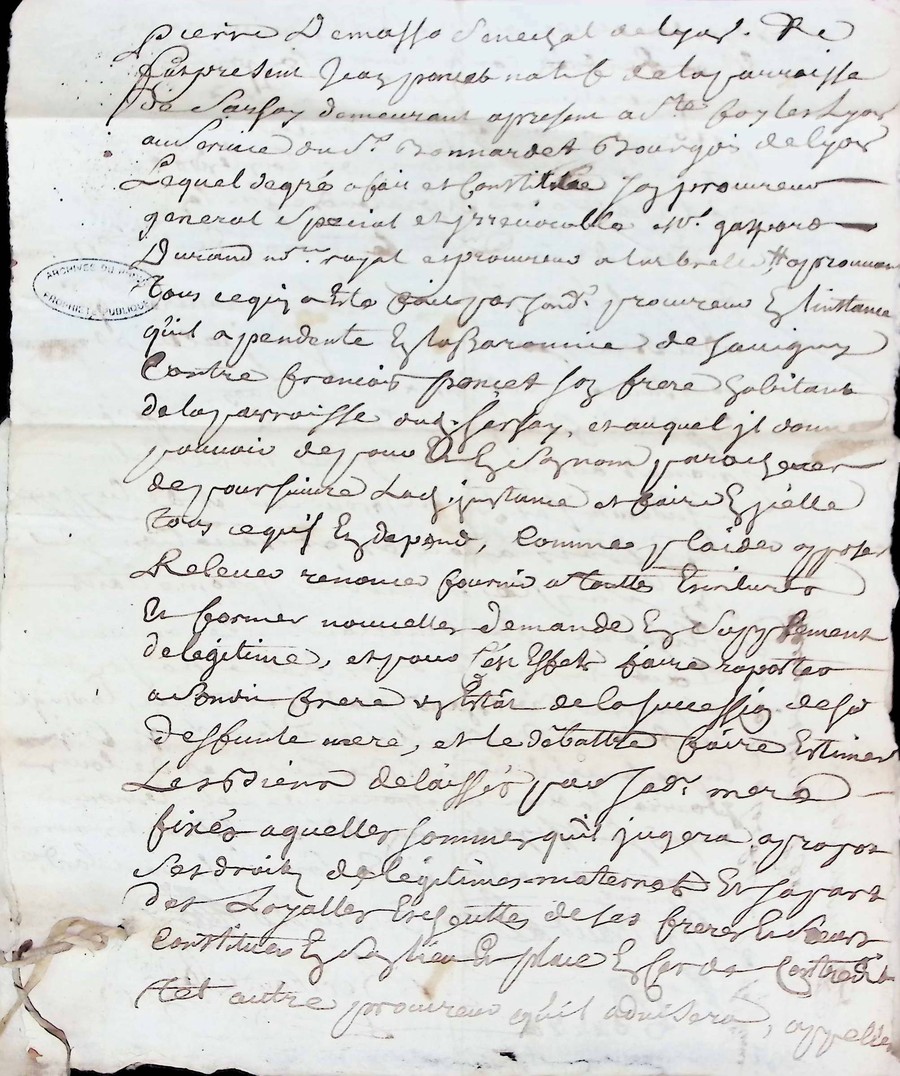 pierre Demasso Senechal de lyon.
fut present Jean poncet natif de la parroisse
de Sarsay demeurant apresent a Ste foy les Lyon
au Service du Sr. Bonnardet Bourgois de lyon
Lequel de gré a fait et Constitue son procureur
general Special et jrrevocable Mr. gaspard
Durand nre. royal et procureur a larbrelle # aprouvant
tous ce qui a esté fait par sond. procureur En linstance
quil a pendente En la Baronnie de Savigny
Contre francois poncet son frere habitant
de la parroisse dud. Sarsay, et auquel jl donne
pouvoir de pour & En Son nom parachever
de poursuivre Lad. jnstance et faire En jcelle
tous ce quil En depend, Comme plaider opposer
Relever renoncer fournir a toutte Ecritures
Et former nouvelle demande En Supplement
de legitime, et pour cet Effet faire raporter
a Sondit frere un Estat de la succession de sa
deffunte mere, et le debattre faire Estimer
Les Biens délaissés par sad. mere
fixer a quelles sommes quil jugera apropos
Ses droits de legitimes maternels Et sa part
des Loyalles Escheuttes de ses freres Et Soeurs
Constituer En Son lieu Et place En Cas de Contredit
tel autre procureur quil advisera, appeller
ARCHIVES DU RHÔNE
PROPRIETE PUBLIQUE